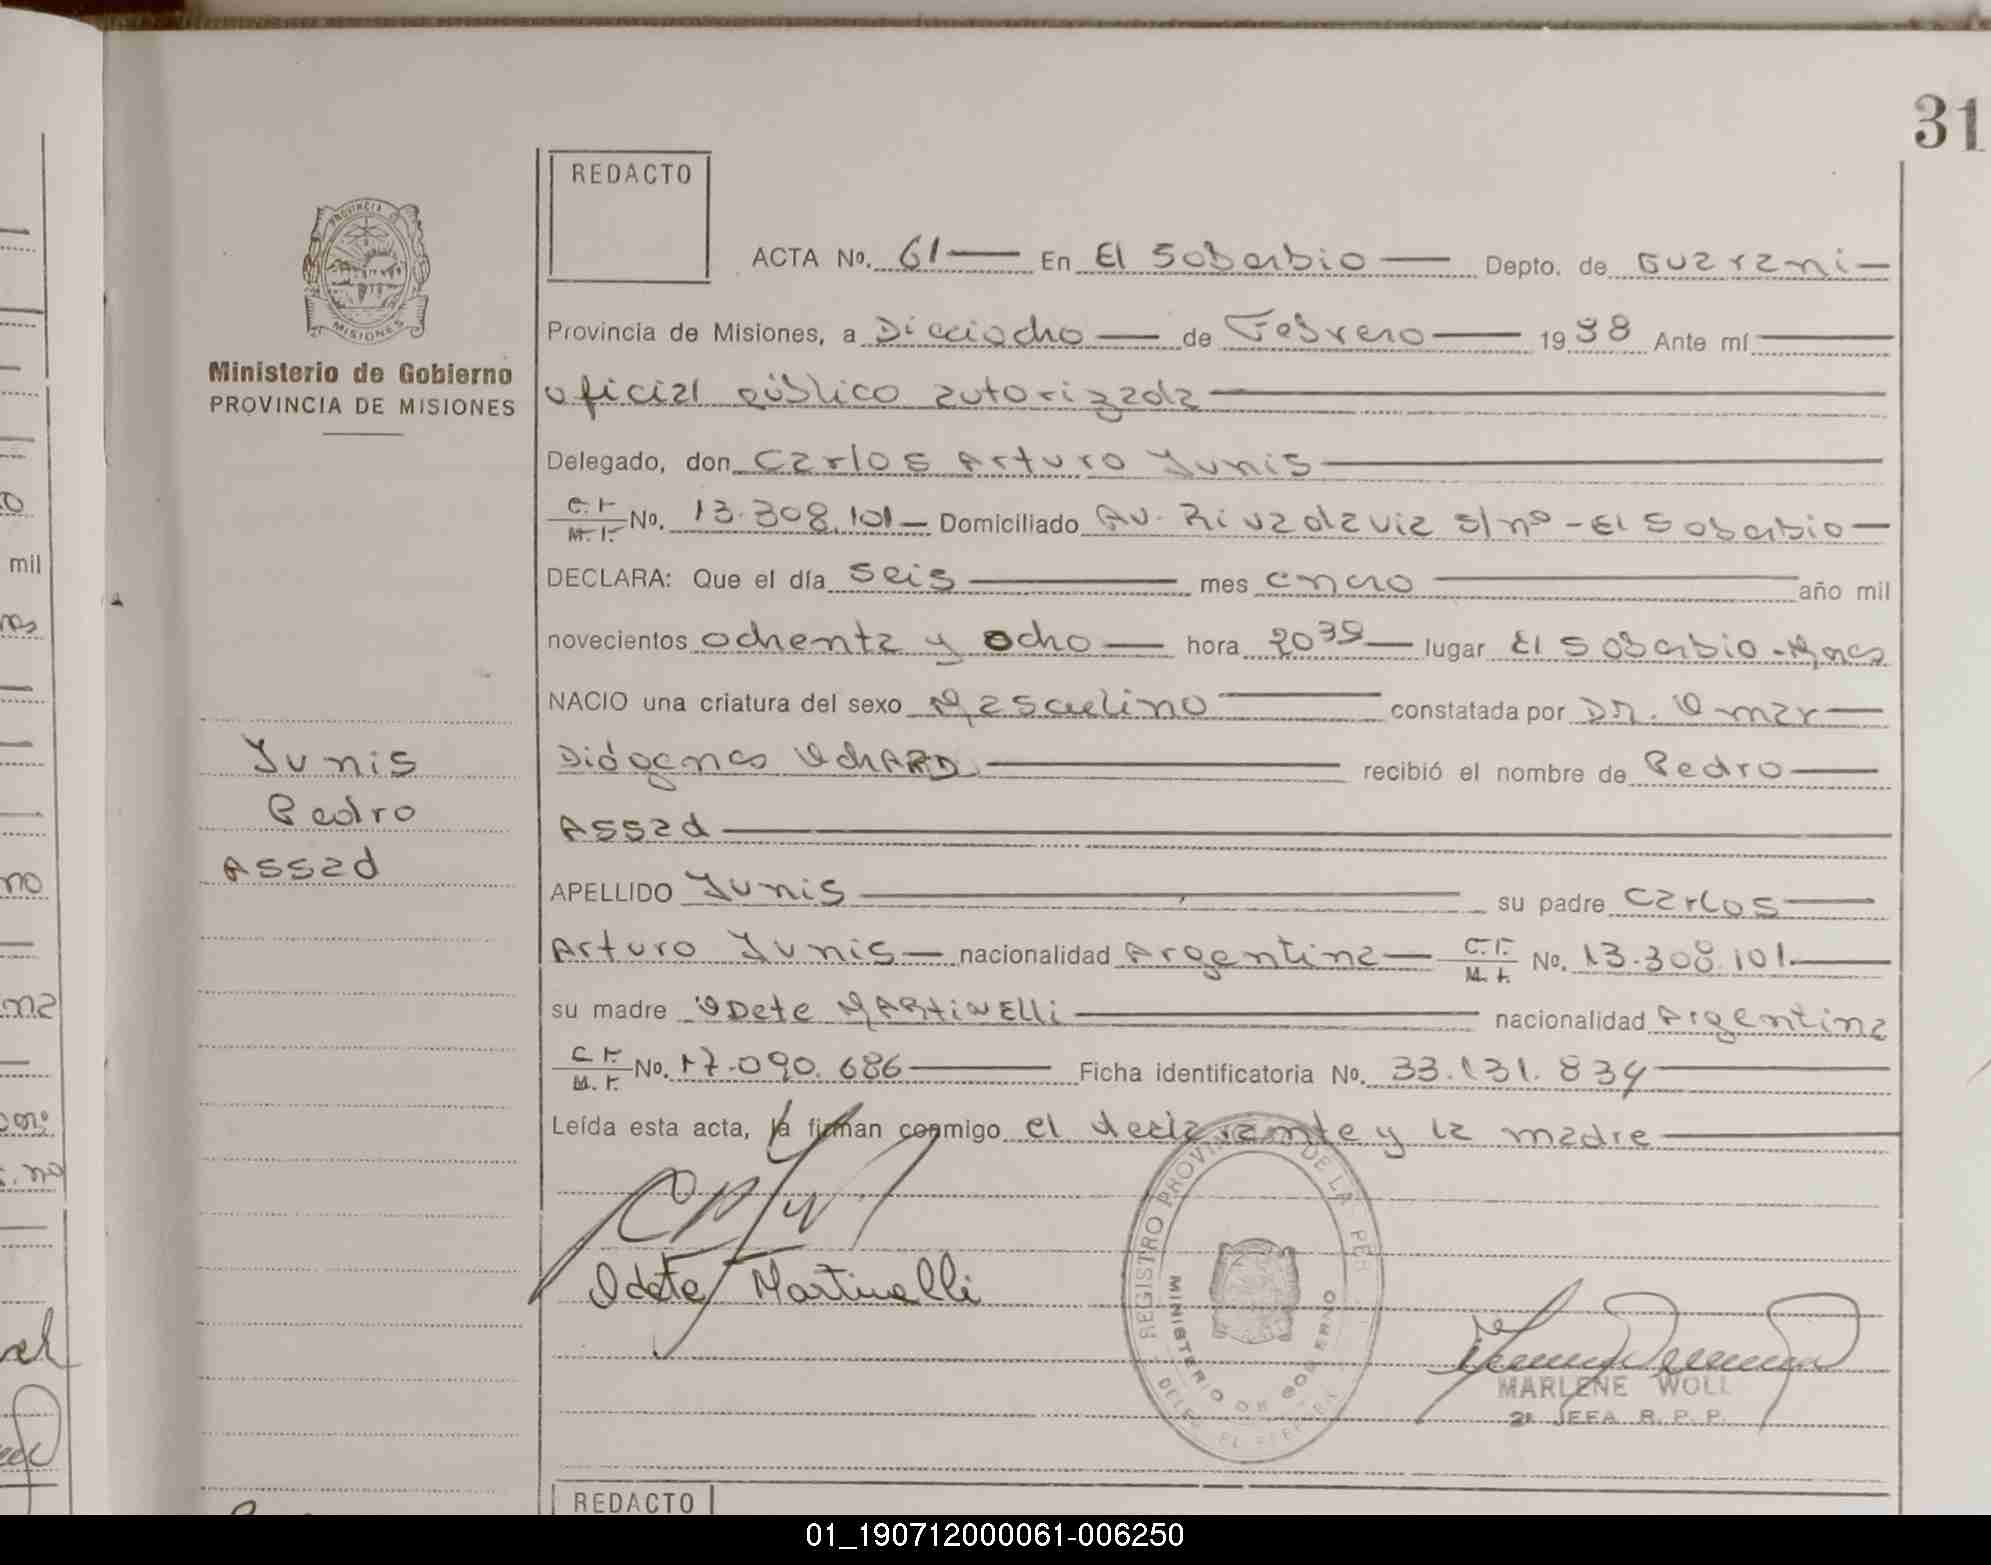 31
REDACTO
PROVINCIA DE
MISIONES
Ministerio de Gobierno
PROVINCIA DE MISIONES
ACTA No. 61 — En El Soberbio — Depto. de Guarani —
Provincia de Misiones, a Dieciocho — de Febrero — 1988 Ante mí —
oficial público autorizada —
Delegado, don Carlos Arturo Yunis —
C. I. M. I. No. 13.308.101 — Domiciliado Av. Rivadavia s/nº - El Soberbio —
DECLARA: Que el día seis — mes enero — año mil
novecientos ochenta y ocho — hora 20 35 — lugar El Soberbio - Mnes
NACIO una criatura del sexo Masculino — constatada por DR. Omar —
Diógenes OchARD — recibió el nombre de Pedro —
Assad —
APELLIDO Yunis — su padre Carlos —
Arturo Yunis — nacionalidad Argentina — C. I. M. I. No. 13.308.101 —
su madre ODete MARtiNElli — nacionalidad Argentina
C. I. M. I. No. 17.090.686 — Ficha identificatoria No. 33.131.834 —
Leída esta acta, la firman conmigo el declarante y la madre —
Yunis
Pedro
Assad
Odete Martinelli
REGISTRO PROVINCIAL DE LA
MINISTERIO DE GOBIERNO
MARLENE WOLL
2ª JEFA R. P. P.
REDACTO
mil
01_190712000061-006250